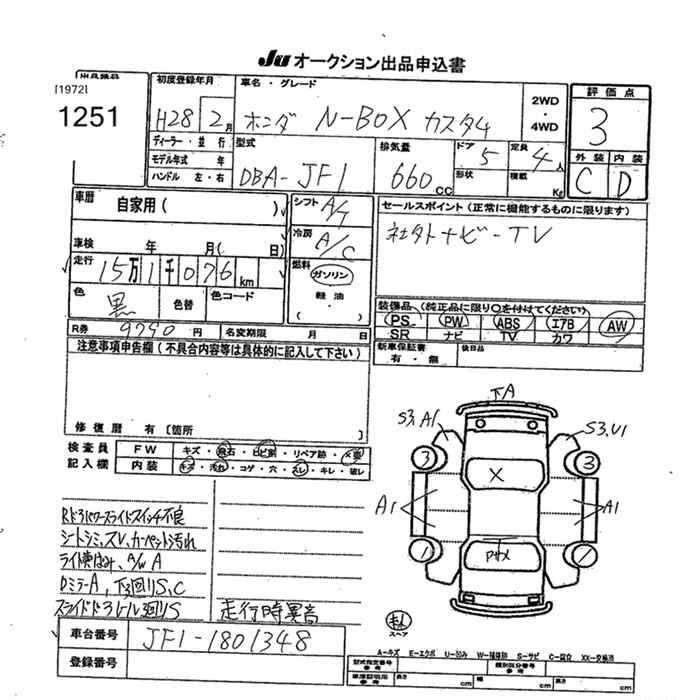 Ju オークション出品申込書
出品番号
[1972]
1251
初度登録年月
H28 2月
車名・グレード
ホンダ N-BOX カスタム
2WD・4WD
評価点
3
外装 内装
C D
ディーラー・並行
モデル年式 年
ハンドル 左・右
型式
DBA-JF1
排気量
660 cc
ドア 5
形状
定員 4人
積載 Kg
車歴 自家用( )
車検 年 月( 日)
走行 15万1千076 km
色 黒 色替 色コード
R券 9790 円 名変期限 月 日
シフト A/T
冷房 A/C
燃料 ガソリン
軽油
( )
セールスポイント(正常に機能するものに限ります)
社外ナビ-TV
装備品 (純正品に限り○を付けてください)
PS PW ABS エアB AW
SR ナビ TV カワ
新車保証書 有・無
後日品
注意事項申告欄(不具合内容等は具体的に記入して下さい)
修復歴 有 [箇所
検査員記入欄
FW キズ・飛石・ヒビ割・リペア跡・X要
内装 キズ・汚れ・コゲ・穴・スレ・キレ・破レ
Rドアパワースライドスイッチ不良
シートシミ、スレ、カーペット汚れ
ライト黄ばみ、A/W A
DミラーA、下回りS、C
スライドドアレール廻りS
走行時異音
車台番号 JF1-1801348
登録番号
下A
S3,A1
S3,U1
3
3
X
A1
A1
1
1
スペア
A-キズ E-エクボ U-凹み W-補修跡 S-サビ C-腐食 XX-交換済
型式指定番号 参考
類別区分番号 参考
車庫証明用 参考
長さ cm
幅 cm
高さ cm